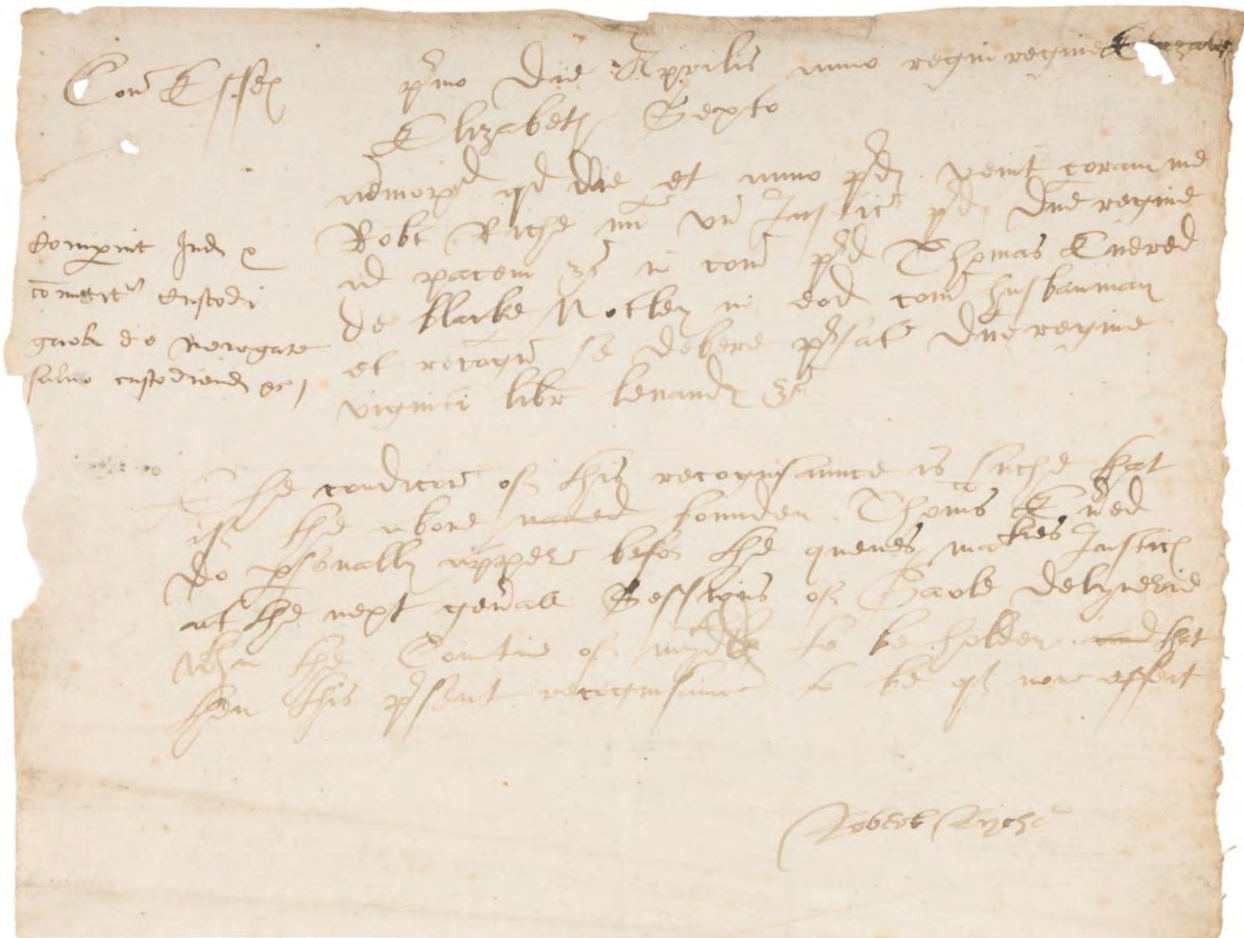 Com Essex
pimo Die Aprilis anno regni regine
Elizabeth Sexto
memord qd die et anno pd venit coram me
Robt Riche mil un Justic pd Dne regine
ad pacem &c in com pd Thomas Evered
de blacke Notley in eod com husbanman
et recogn se debere pfat Dne regine
viginti libr levand &c
Compuit
comittit Custodi
gaole de Newgate
salvo custodiend &c
The condicon of this recognisaunce is suche that
if the above named bounden Thoms Eved
do psonally apper befor the quenes maties Justic
at the next genall Sessions of Gaole delyverie
the Countie of midd to be holden and that
then this psent recognisaunce to be of none effect
Robert Ryche